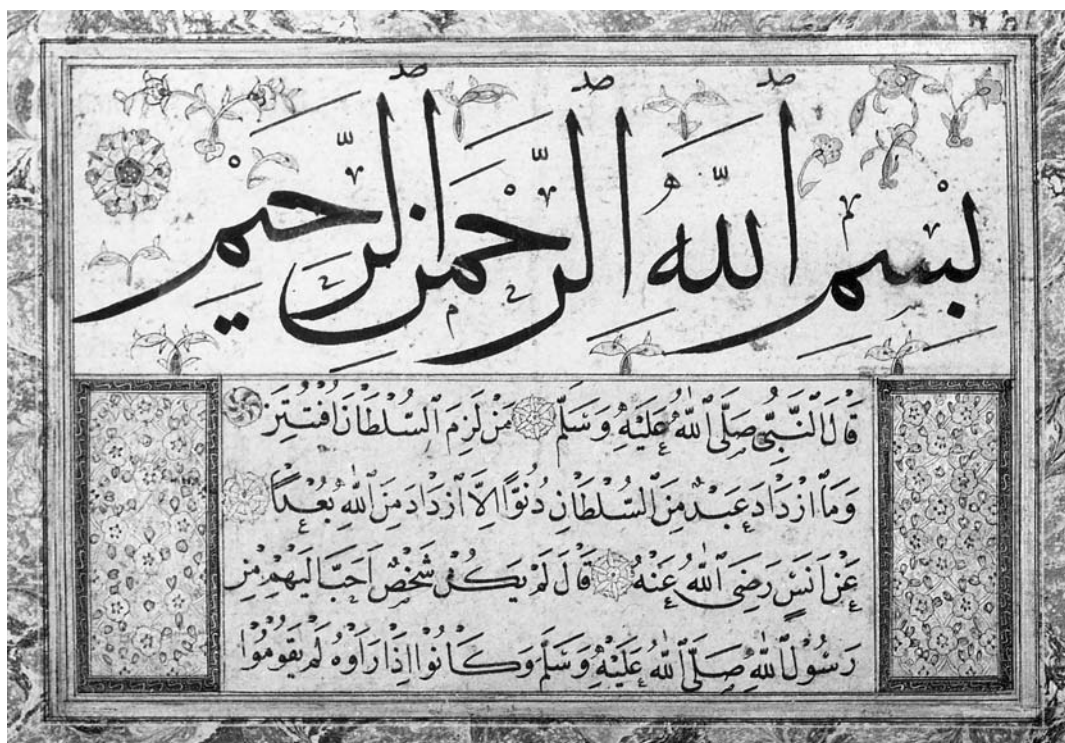 بِسْمِ ٱللّٰهِ ٱلرَّحْمٰنِ ٱلرَّحِيْمِ
قَالَ ٱلنَّبِىُّ صَلَّى ٱللّٰهُ عَلَيْهِ وَسَلَّمَ مَنْ لَزِمَ ٱلسُّلْطَانَ ٱفْتُتِنَ
وَمَا ٱزْدَادَ عَبْدٌ مِنَ ٱلسُّلْطَانِ دُنُوًّا اِلَّا ٱزْدَادَ مِنَ ٱللّٰهِ بُعْدًا
عَنْ اَنَسٍ رَضِىَ ٱللّٰهُ عَنْهُ قَالَ لَمْ يَكُنْ شَخْصٌ اَحَبَّ اِلَيْهِمْ مِنْ
رَسُولِ ٱللّٰهِ صَلَّى ٱللّٰهُ عَلَيْهِ وَسَلَّمَ وَكَانُوا اِذَا رَاَوْهُ لَمْ يَقُومُوا